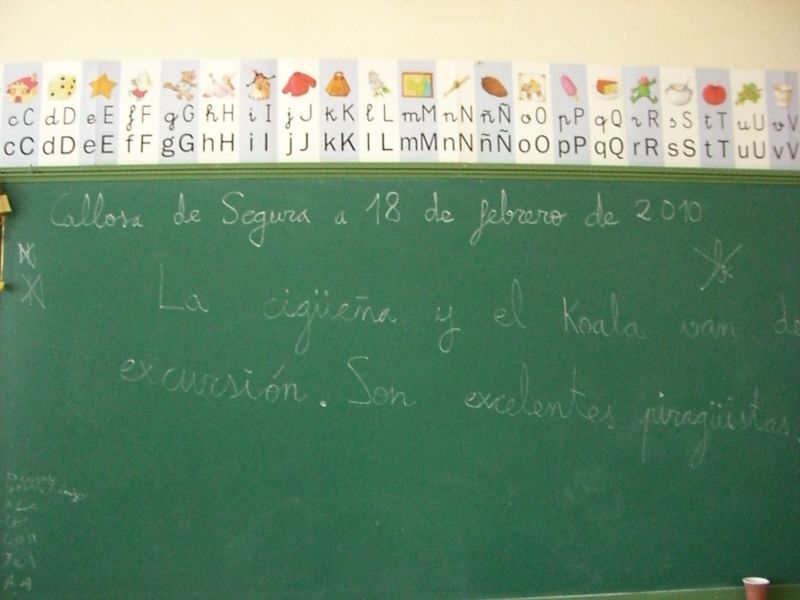 cC dD eE fF gG hH iI jJ kK lL mM nN ñÑ oO pP qQ rR sS tT uU vV
cC dD eE fF gG hH iI jJ kK lL mM nN ñÑ oO pP qQ rR sS tT uU vV
Callosa de Segura a 18 de febrero de 2010
La cigüeña y el Koala van de
excursión. Son excelentes piragüistas.